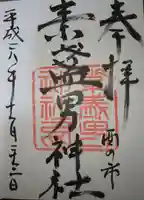 奉拝
関の市
素盞男神社
平成二八年十一月二十三日